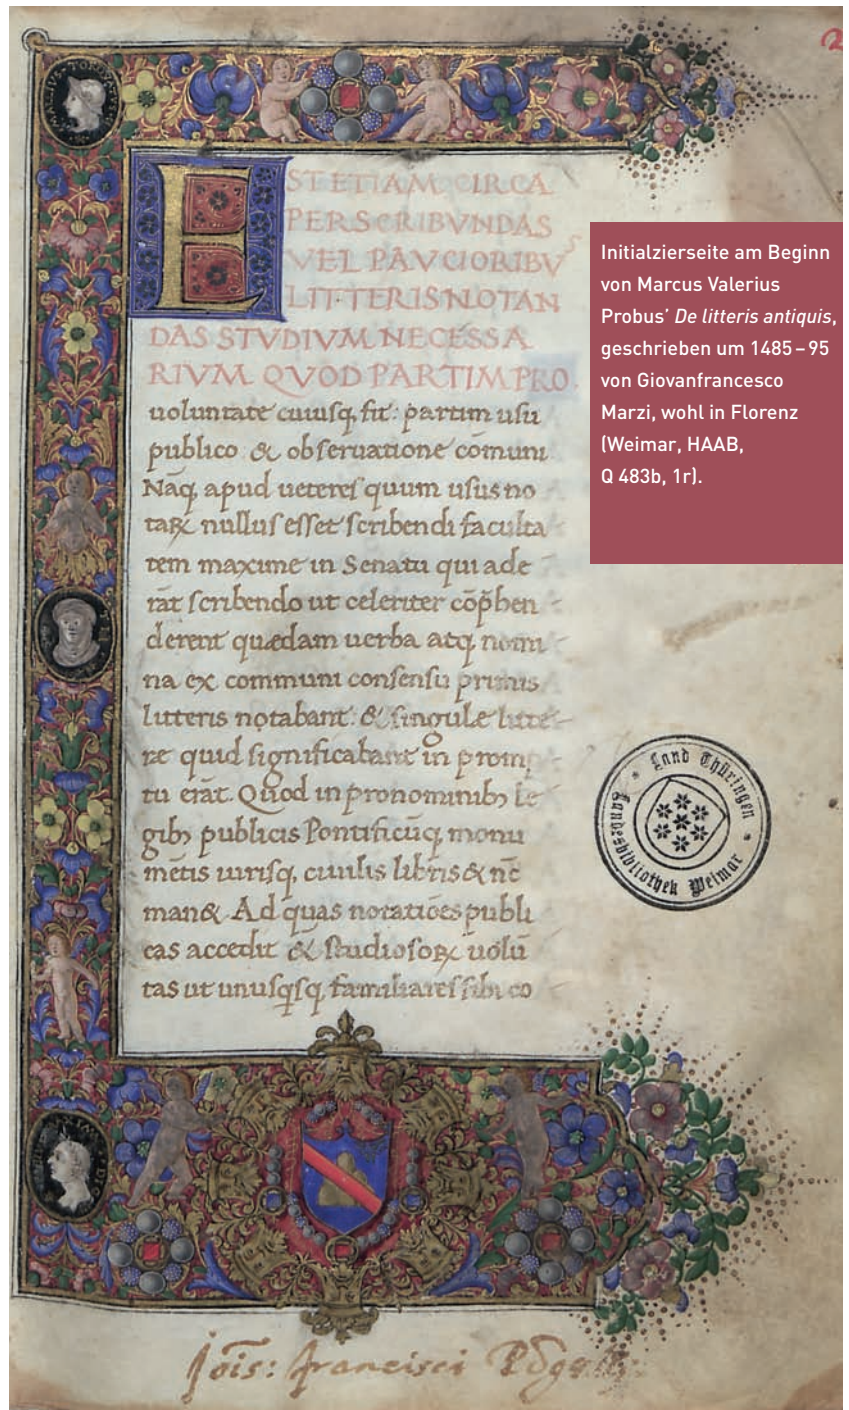 2
EST ETIAM CIRCA
PERSCRIBVNDAS
VEL PAVCIORIBVS
LITTERIS NOTAN
DAS STVDIVM NECESSA
RIVM QVOD PARTIM PRO
uoluntate cuiusq, fit: partim usu
publico & obseruatione cōmuni
Nāq, apud ueteres quum usus no
taꝝ nullus esset scribendi faculta
tem maxime in Senatu qui ade
rāt scribendo ut celeriter cōp̄hen
derent quædam uerba atq, nomi
na ex communi consensu primis
litteris notabant: & singulę litte
rę quid significabant in promp
tu erāt. Quod in pronominibꝫ le
gibꝫ publicis Pontificūq, monu
mētis iurisq, ciuilis libris & nc̄
man&. Ad quas notatiōes publi
cas accedit & studiosoꝝ uolū
tas ut unusqsq, familiares sibi co
Initialzierseite am Beginn
von Marcus Valerius
Probus’ De litteris antiquis,
geschrieben um 1485–95
von Giovanfrancesco
Marzi, wohl in Florenz
(Weimar, HAAB,
Q 483b, 1r).
Land Thüringen
Landesbibliothek Weimar
Jōis: francisci